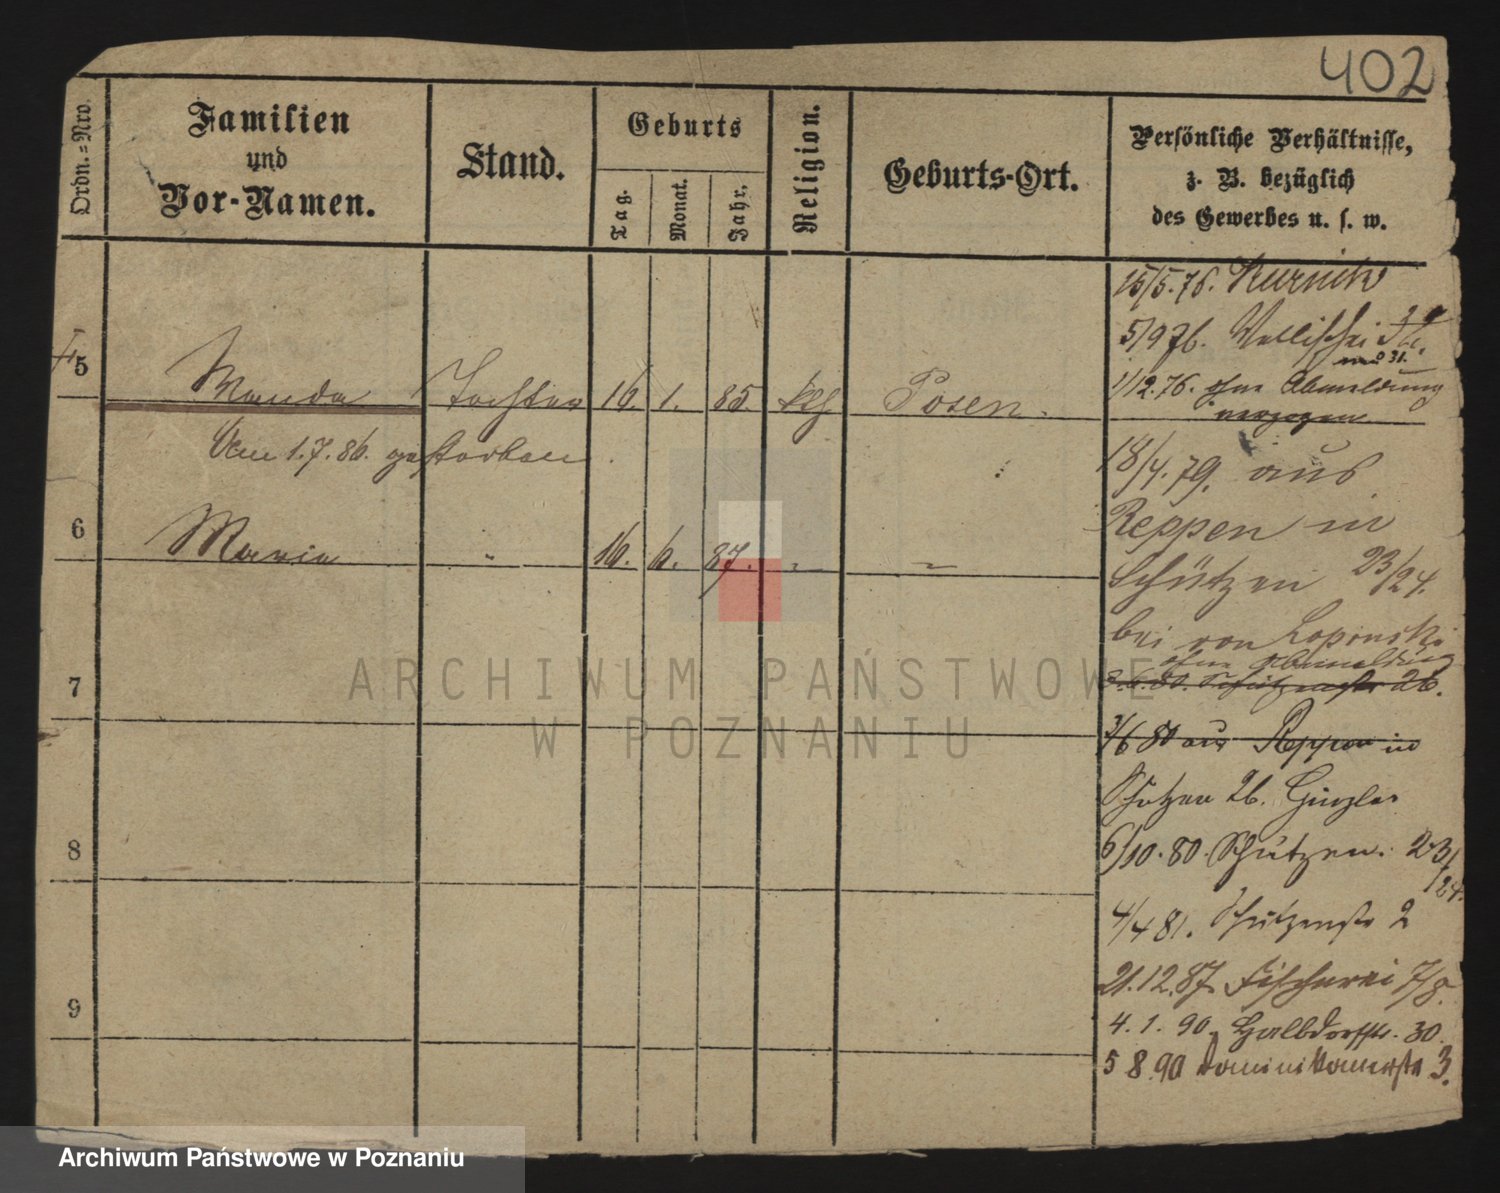 402
Ordn.=Nro.
Familien
und
Vor-Namen.
Stand.
Geburts
Tag.
Monat.
Jahr.
Religion.
Geburts-Ort.
Persönliche Verhältnisse,
z. B. bezüglich
des Gewerbes u. s. w.
5
Wanda Tochter 16. 1. 85. kth Posen.
Am 1.7.86. gestorben
6
Maria " 16. 6. 87. " "
7
8
9
15/5.76. Kurnik
5/9 76. Wallischei
1/12.76. ohne Abmeldung
verzogen
18/4.79. aus
Reppen in
Schützen 23/24.
bei von
ohne Abmeldung
2.6.80. Schützenstr 26.
3/6 80 aus Reppen in
Schützen 26.
6/10.80. Schützen. 23/24.
4/4 81. Schützenstr 2
21.12.87. Fischerei 7/8.
4.1.90. Halbdorfstr. 30.
5 8.90 Dominikanerstr 3.
ARCHIWUM PAŃSTWOWE
W POZNANIU
Archiwum Państwowe w Poznaniu